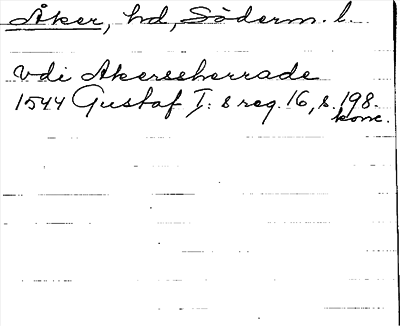 Åker, hd, Söderm. l.
vdi Akersherrade
1544 Gustaf I:s reg. 16, s. 198.
konc.